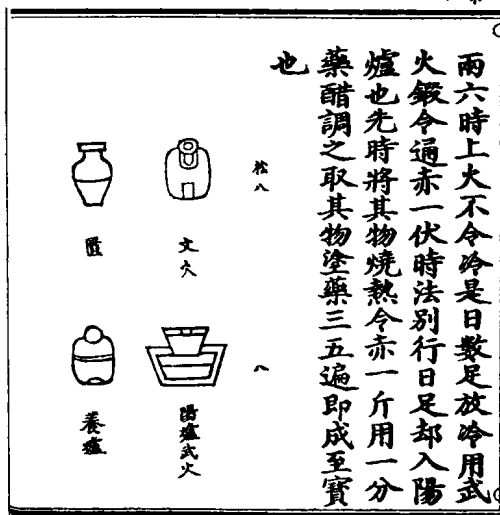 兩六時上火不令冷是日數足放冷用武
火鍛令通赤一伏時法別行日足却入陽
爐也先時將其物燒熱令赤一斤用一分
藥醋調之取其物塗藥三五遍即成至寶
也
松八
八
文火
陽爐武火
匱
養爐